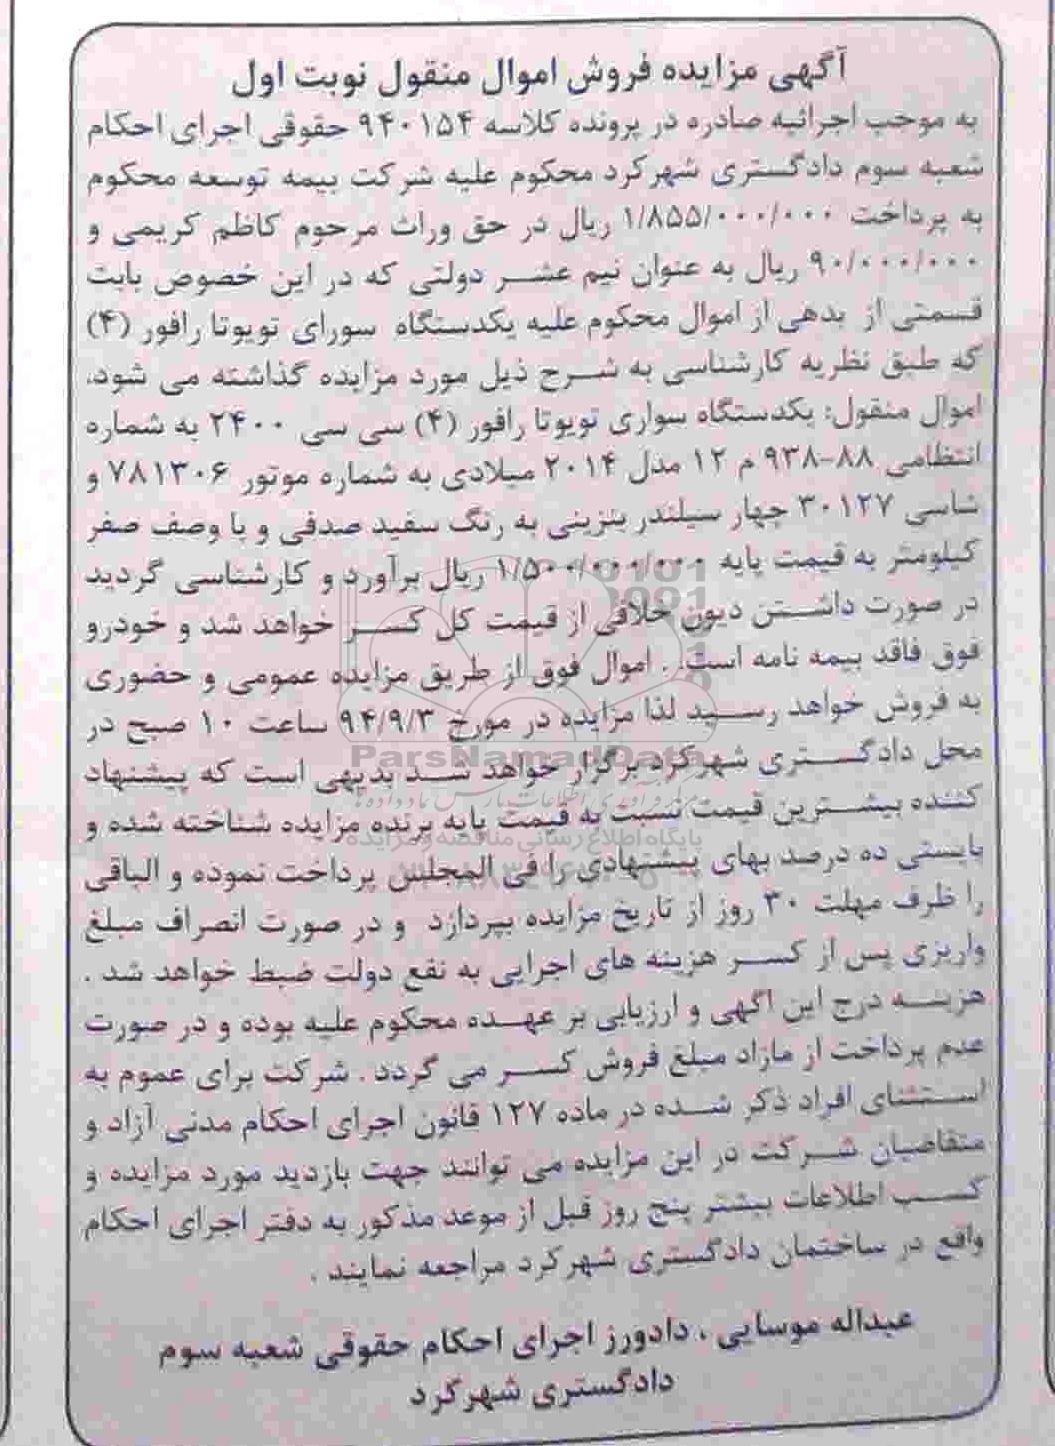 آگهی مزایده فروش اموال منقول نوبت اول
به موجب اجرائیه صادره در پرونده کلاسه ۹۴۰۱۵۴ حقوقی اجرای احکام
شعبه سوم دادگستری شهرکرد محکوم علیه شرکت بیمه توسعه محکوم
به پرداخت ۱/۸۵۵/۰۰۰/۰۰۰ ریال در حق وراث مرحوم کاظم کریمی و
۹۰/۰۰۰/۰۰۰ ریال به عنوان نیم عشر دولتی که در این خصوص بابت
قسمتی از بدهی از اموال محکوم علیه یکدستگاه سورای تویوتا رافور (۴)
که طبق نظریه کارشناسی به شرح ذیل مورد مزایده گذاشته می شود.
اموال منقول: یکدستگاه سواری تویوتا رافور (۴) سی سی ۲۴۰۰ به شماره
انتظامی ۸۸-۹۳۸ م ۱۲ مدل ۲۰۱۴ میلادی به شماره موتور ۷۸۱۳۰۶ و
شاسی ۳۰۱۲۷ چهار سیلندر بنزینی به رنگ سفید صدفی و با وصف صفر
کیلومتر به قیمت پایه ۱/۵۰۰/۰۰۰/۰۰۰ ریال برآورد و کارشناسی گردید
در صورت داشتن دیون خلافی از قیمت کل کسر خواهد شد و خودرو
فوق فاقد بیمه نامه است. . اموال فوق از طریق مزایده عمومی و حضوری
به فروش خواهد رسید لذا مزایده در مورخ ۹۴/۹/۳ ساعت ۱۰ صبح در
محل دادگستری شهرکرد برگزار خواهد شد بدیهی است که پیشنهاد
کننده بیشترین قیمت نسبت به قیمت پایه برنده مزایده شناخته شده و
بایستی ده درصد بهای پیشنهادی را فی المجلس پرداخت نموده و الباقی
را ظرف مهلت ۳۰ روز از تاریخ مزایده بپردازد و در صورت انصراف مبلغ
واریزی پس از کسر هزینه های اجرایی به نفع دولت ضبط خواهد شد .
هزینه درج این آگهی و ارزیابی بر عهده محکوم علیه بوده و در صورت
عدم پرداخت از مازاد مبلغ فروش کسر می گردد . شرکت برای عموم به
استثنای افراد ذکر شده در ماده ۱۲۷ قانون اجرای احکام مدنی آزاد و
متقاصیان شرکت در این مزایده می توانند جهت بازدید مورد مزایده و
کسب اطلاعات بیشتر پنج روز قبل از موعد مذکور به دفتر اجرای احکام
واقع در ساختمان دادگستری شهرکرد مراجعه نمایند .
عبداله موسایی ، دادورز اجرای احکام حقوقی شعبه سوم
دادگستری شهرکرد
ParsNamadData
پایگاه اطلاع رسانی مناقصه و مزایده